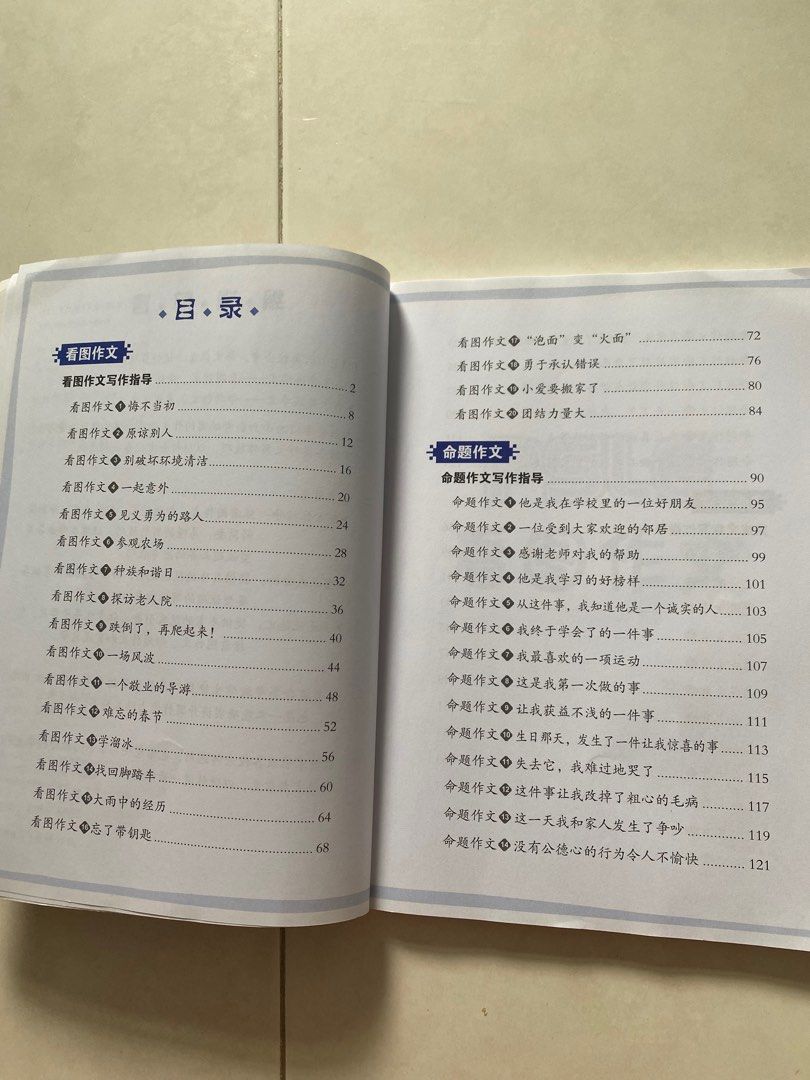 目录
看图作文
看图作文写作指导 2
看图作文1 悔不当初 8
看图作文2 原谅别人 12
看图作文3 别破坏环境清洁 16
看图作文4 一起意外 20
看图作文5 见义勇为的路人 24
看图作文6 参观农场 28
看图作文7 种族和谐日 32
看图作文8 探访老人院 36
看图作文9 跌倒了，再爬起来！ 40
看图作文10 一场风波 44
看图作文11 一个敬业的导游 48
看图作文12 难忘的春节 52
看图作文13 学溜冰 56
看图作文14 找回脚踏车 60
看图作文15 大雨中的经历 64
看图作文16 忘了带钥匙 68
看图作文17 “泡面”变“火面” 72
看图作文18 勇于承认错误 76
看图作文19 小爱要搬家了 80
看图作文20 团结力量大 84
命题作文
命题作文写作指导 90
命题作文1 他是我在学校里的一位好朋友 95
命题作文2 一位受到大家欢迎的邻居 97
命题作文3 感谢老师对我的帮助 99
命题作文4 他是我学习的好榜样 101
命题作文5 从这件事，我知道他是一个诚实的人 103
命题作文6 我终于学会了的一件事 105
命题作文7 我最喜欢的一项运动 107
命题作文8 这是我第一次做的事 109
命题作文9 让我获益不浅的一件事 111
命题作文10 生日那天，发生了一件让我惊喜的事 113
命题作文11 失去它，我难过地哭了 115
命题作文12 这件事让我改掉了粗心的毛病 117
命题作文13 这一天我和家人发生了争吵 119
命题作文14 没有公德心的行为令人不愉快 121